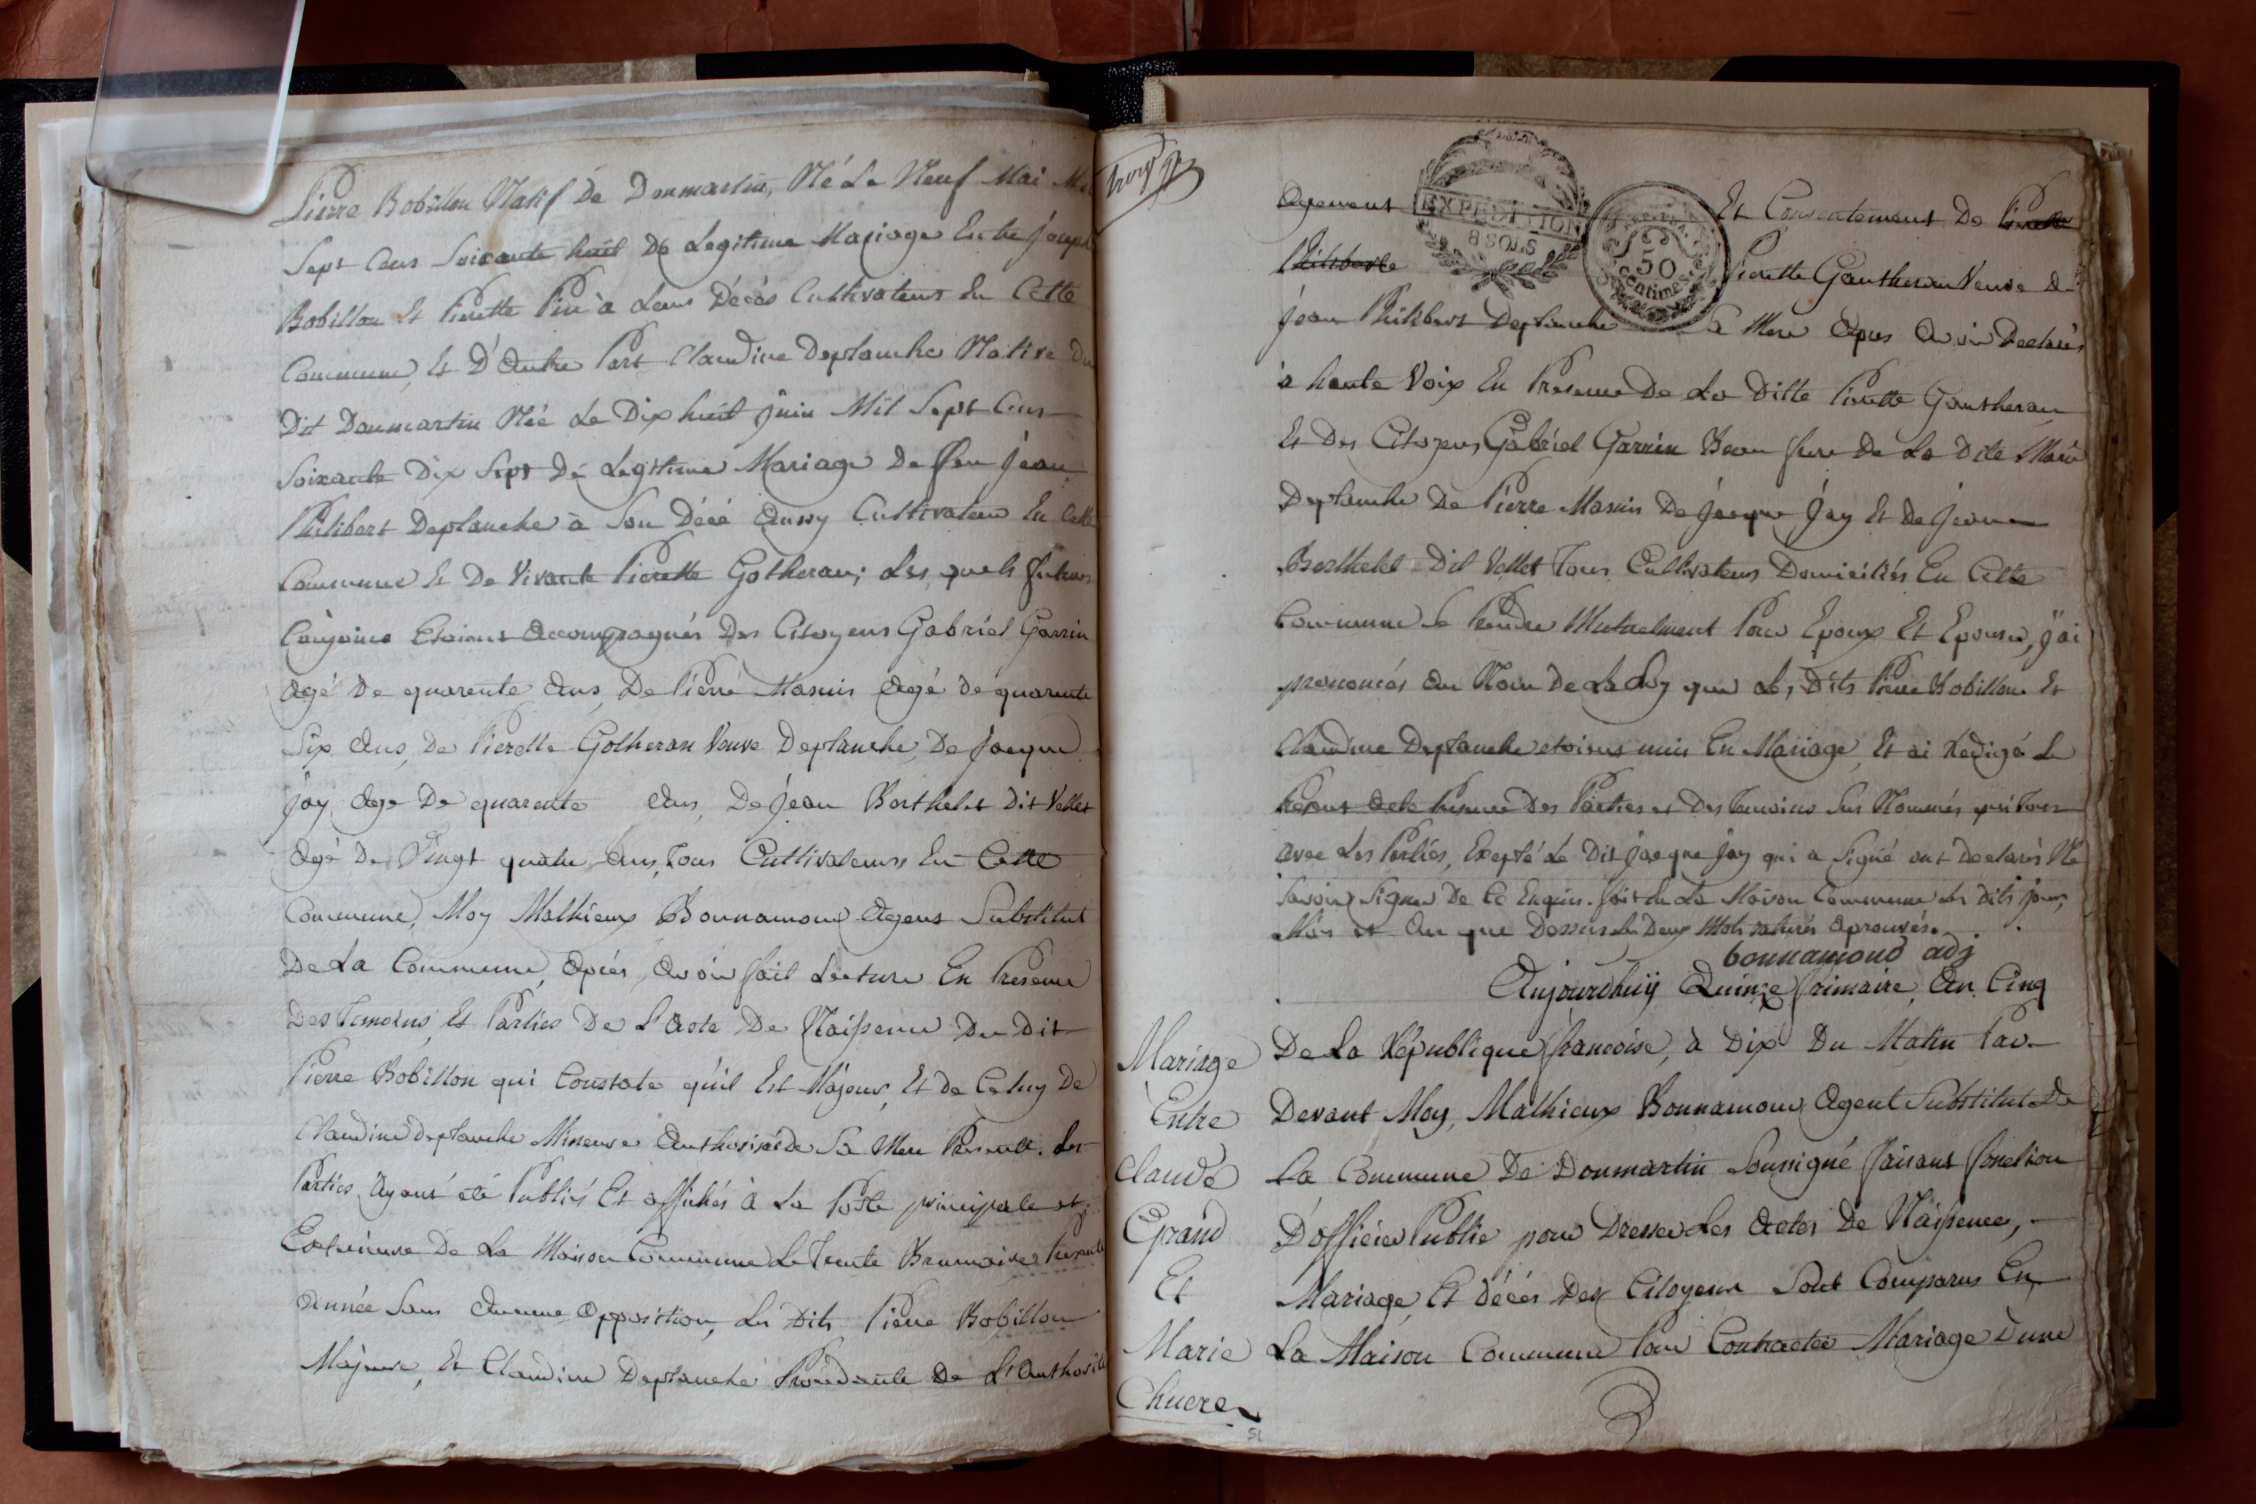 Pierre Bobillon Natif De Donmartin, Né Le Neuf Mai Mil
Sept Cens Soixante huit De Legitime Mariage Entre Joseph
Bobillon Et Pierette Pin à Leur Décès Cultivateurs En Cette
Commune, Et D'Autre Part Claudine Deplanche Native Du
Dit Donmartin Née Le Dix huit Juin Mil Sept Cens
Soixante Dix Sept De Legitime Mariage De Feu Jean
Philibert Deplanche à Son Décé Aussy Cultivateur En Cette
Commune Et De Vivante Pierette Gotheran; Les quels futurs
Conjoins Etoient Accompagnés Des Citoyens Gabriel Garrin
Agé De quarente Ans, De Pierre Masuis Agé de quarente
Six Ans, De Pierette Gotheran Veuve Deplanche, De Jacque
Jay, Age De quarente Ans, De Jean Berthelet Dit Vellet
Agé De Vingt quatre Ans, Tous Cultivateurs En Cette
Commune, Moy Mathieux Bonnamour Agens Substitut
De La Commune, Apiés Avoir fait Lecture En Presence
Des Temoins, Et Parties De L'Acte De Naissence Du Dit
Pierre Bobillon qui Constate qu'il Est Majeur, Et de Celuy De
Claudine Deplanche Mineure Authorisée De Sa Mere Presente. Les
Parties Ayant été Publiés Et affichés à La Porte principale et
Exterieure De La Maison Commune Le Trente Brumaire presente
Année Sans Aucune Opposition, Les Dits Pierre Bobillon
Majeure, Et Claudine Deplanche Procedante De L'Authorité
Agement Et Consentement De Pierette
EXPEDITION
8 SOLS
50
centimes
Philiberte Pierette Gautheran Veuve De
Jean Philibert Deplanche Sa Mere Apres Avoir Declarés
à haute Voix En Presence De La Ditte Pierette Gautheran
Et Des Citoyens Gabriel Garrin Beau frere De La Dite Marie
Deplanche De Pierre Masuis De Jacque Jay Et de Jean
Berthelet Dit Vellet Tous Cultivateurs Domiciliés En Cette
Commune Se Prendre Mutuelment Pour Epoux Et Epouse, J'ai
prononcés Au Nom De La Loy que Les Dits Pierre Bobillon Et
Claudine Deplanche etoient unis En Mariage, Et ai Redigé Le
Present Acte Presence Des Parties et Des Temoins Sus Nommés qui Tous
avec Les Parties, Excepté Le Dit Jacque Jay qui a Signé ont Declarés Ne
Savoir Signer De Ce Enquis. fait En La Maison Commune Les Dits jours,
Mois et An que Dessus Les Deux Mots raturés aprouvés.
bonnamoud adj
Aujourdhuy Quinze frimaire An Cinq
De La République françoise, à Dix Du Matin Par
Devant Moy, Mathieux Bonnamour Agent Substitut De
La Commune De Donmartin Soussigné faisant fonction
D'officier Public pour Dresser Les Actes De Naissence,
Mariage Et Décés Des Citoyens Sont Comparus En
La Maison Commune Pour Contracter Mariage D'une
Mariage
Entre
Claude
Grand
Et
Marie
Chuere
51